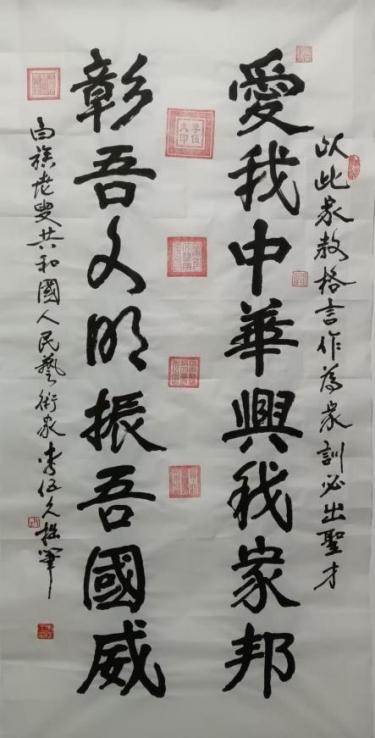 以此家教格言作為家訓必出聖才
愛我中華興我家邦
彰吾文明振吾國威
白族老叟共和國人民藝術家李伍久撰筆